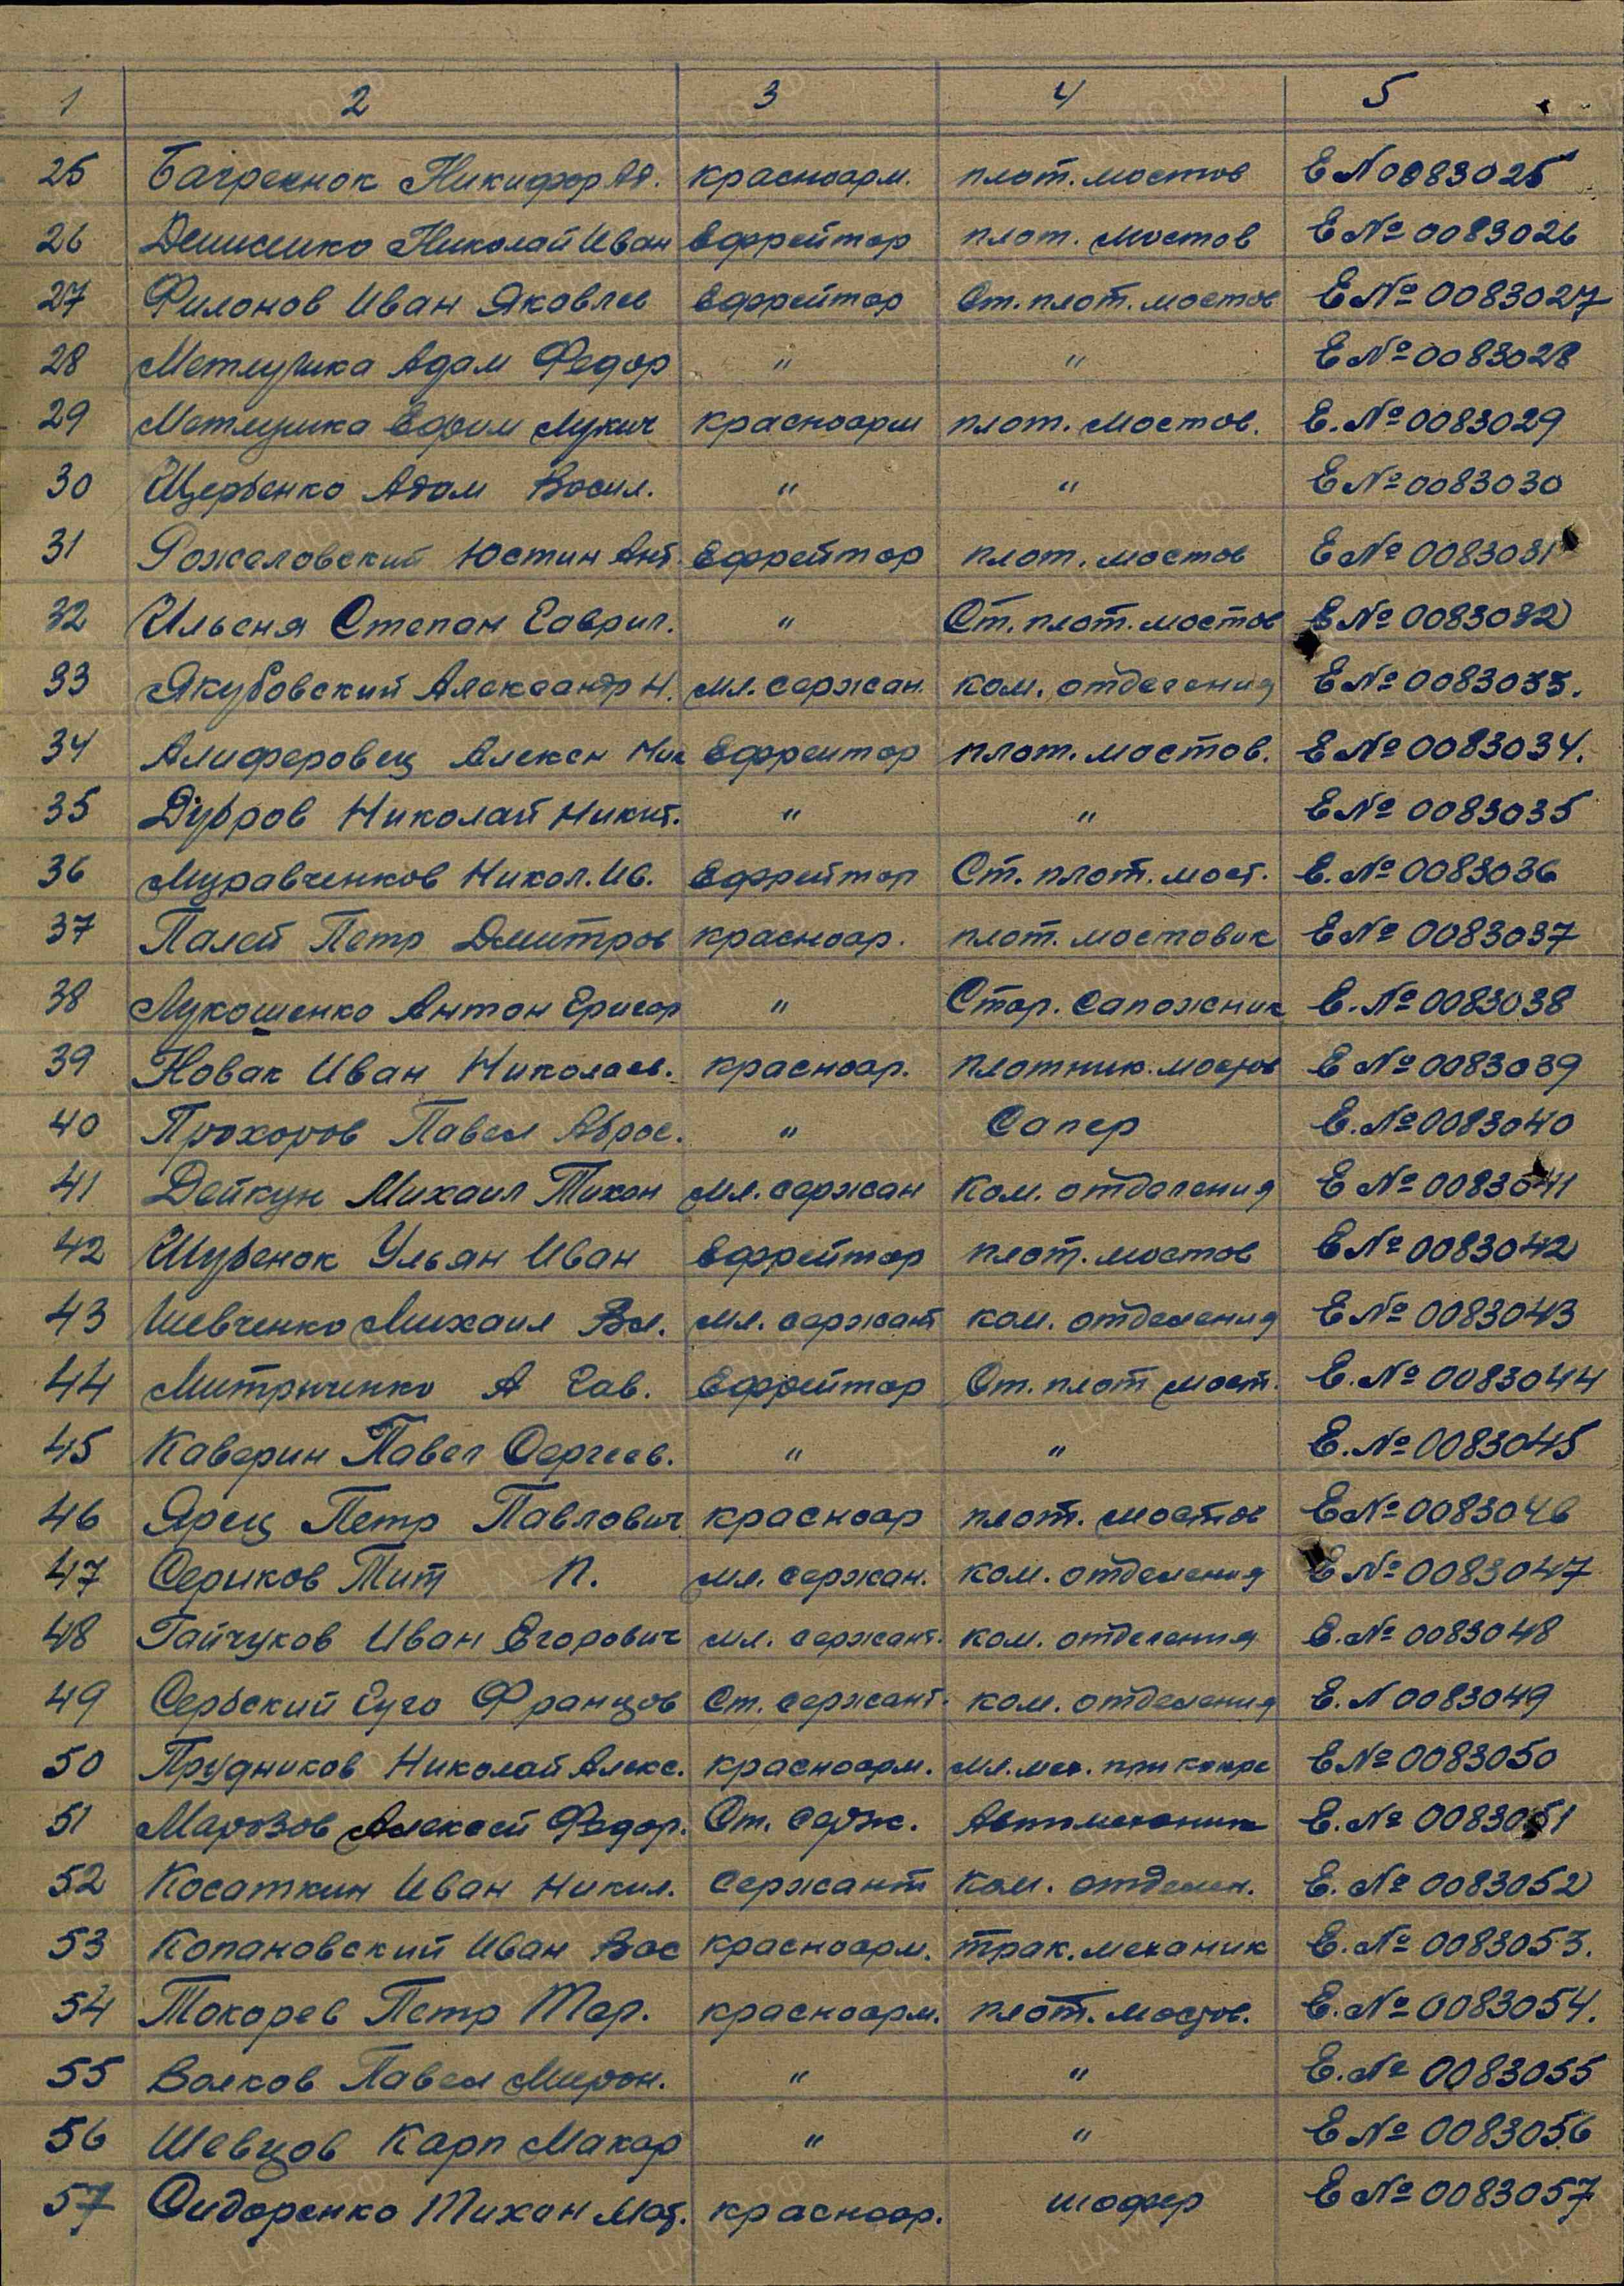 1 2 3 4 5
25 Багренок Никифор Ад. красноарм. плот. мостов Е № 0083025
26 Денисенко Николай Иван Ефрейтор плот. мостов Е № 0083026
27 Филонов Иван Яковлев Ефрейтор Ст. плот. мостов Е № 0083027
28 Метлушка Адам Федор " " Е № 0083028
29 Метлушка Ефим Лукич красноарм плот. мостов. Е. № 0083029
30 Щербенко Адам Васил. " " Е № 0083030
31 Рожаловский Юстин Ант. Ефрейтор плот. мостов Е № 0083031
32 Ильеня Степан Гаврил. " Ст. плот. мостов Е № 0083032
33 Якубовский Александр Н. мл. сержан. ком. отделения Е № 0083033.
34 Алиферовец Алексей Ник Ефрейтор плот. мостов. Е № 0083034.
35 Дубров Николай Никит. " " Е № 0083035
36 Муравченков Никол. Ив. Ефрейтор Ст. плот. мост. Е. № 0083036
37 Палей Петр Дмитров красноар. плот. мостовик Е № 0083037
38 Лукошенко Антон Григор " Стар. сапожник Е. № 0083038
39 Новак Иван Николаев. красноар. плотник. мостов Е № 0083039
40 Прохоров Павел Аброс. " Сапер Е. № 0083040
41 Дейкун Михаил Тихон мл. сержан Ком. отделения Е № 0083041
42 Шубенок Ульян Иван Ефрейтор плот. мостов Е № 0083042
43 Шевченко Михаил Вл. мл. сержант ком. отделения Е № 0083043
44 Митриченко А Сав. Ефрейтор Ст. плот мост. Е. № 0083044
45 Каверин Павел Сергеев. " " Е. № 0083045
46 Ярец Петр Павлович красноар плот. мостов Е № 0083046
47 Сериков Тит П. мл. сержан. ком. отделения Е № 0083047
48 Гайчуков Иван Егорович мл. сержант. ком. отделения Е. № 0083048
49 Сербский Гуго Францов Ст. сержант. ком. отделения Е. N 0083049
50 Прудников Николай Алекс. красноарм. мл. мех. при Е № 0083050
51 Марозов Алексей Федор. Ст. серж. Автомеханик Е. № 0083051
52 Косаткин Иван Никил. Сержант Ком. отделен. Е. № 0083052
53 Копановский Иван Вас красноарм. трак. механик Е. № 0083053.
54 Токарев Петр Тар. красноарм. плот. мостов. Е. № 0083054.
55 Волков Павел Мирон. " " Е. № 0083055
56 Шевцов Карп Макар " " Е № 0083056
57 Сидоренко Тихон Мат. красноар. шофер Е № 0083057